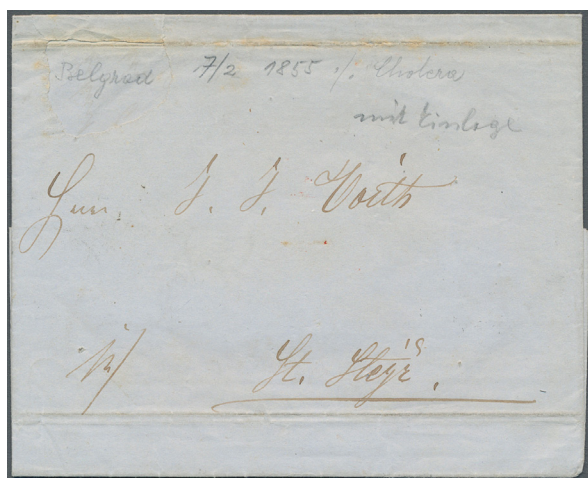 Belgrad 7/2 1855 ./. Cholera
mit Einlage
Herrn J. J. Voith
St. Steyr.